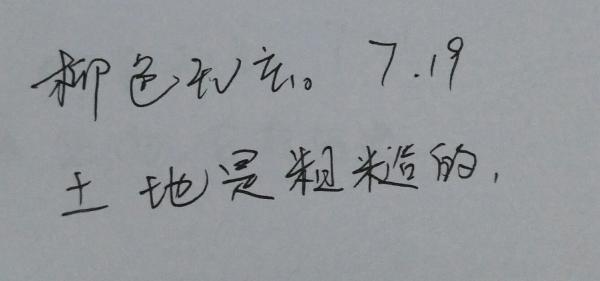 柳色无言。 7.19
土地是粗糙的,